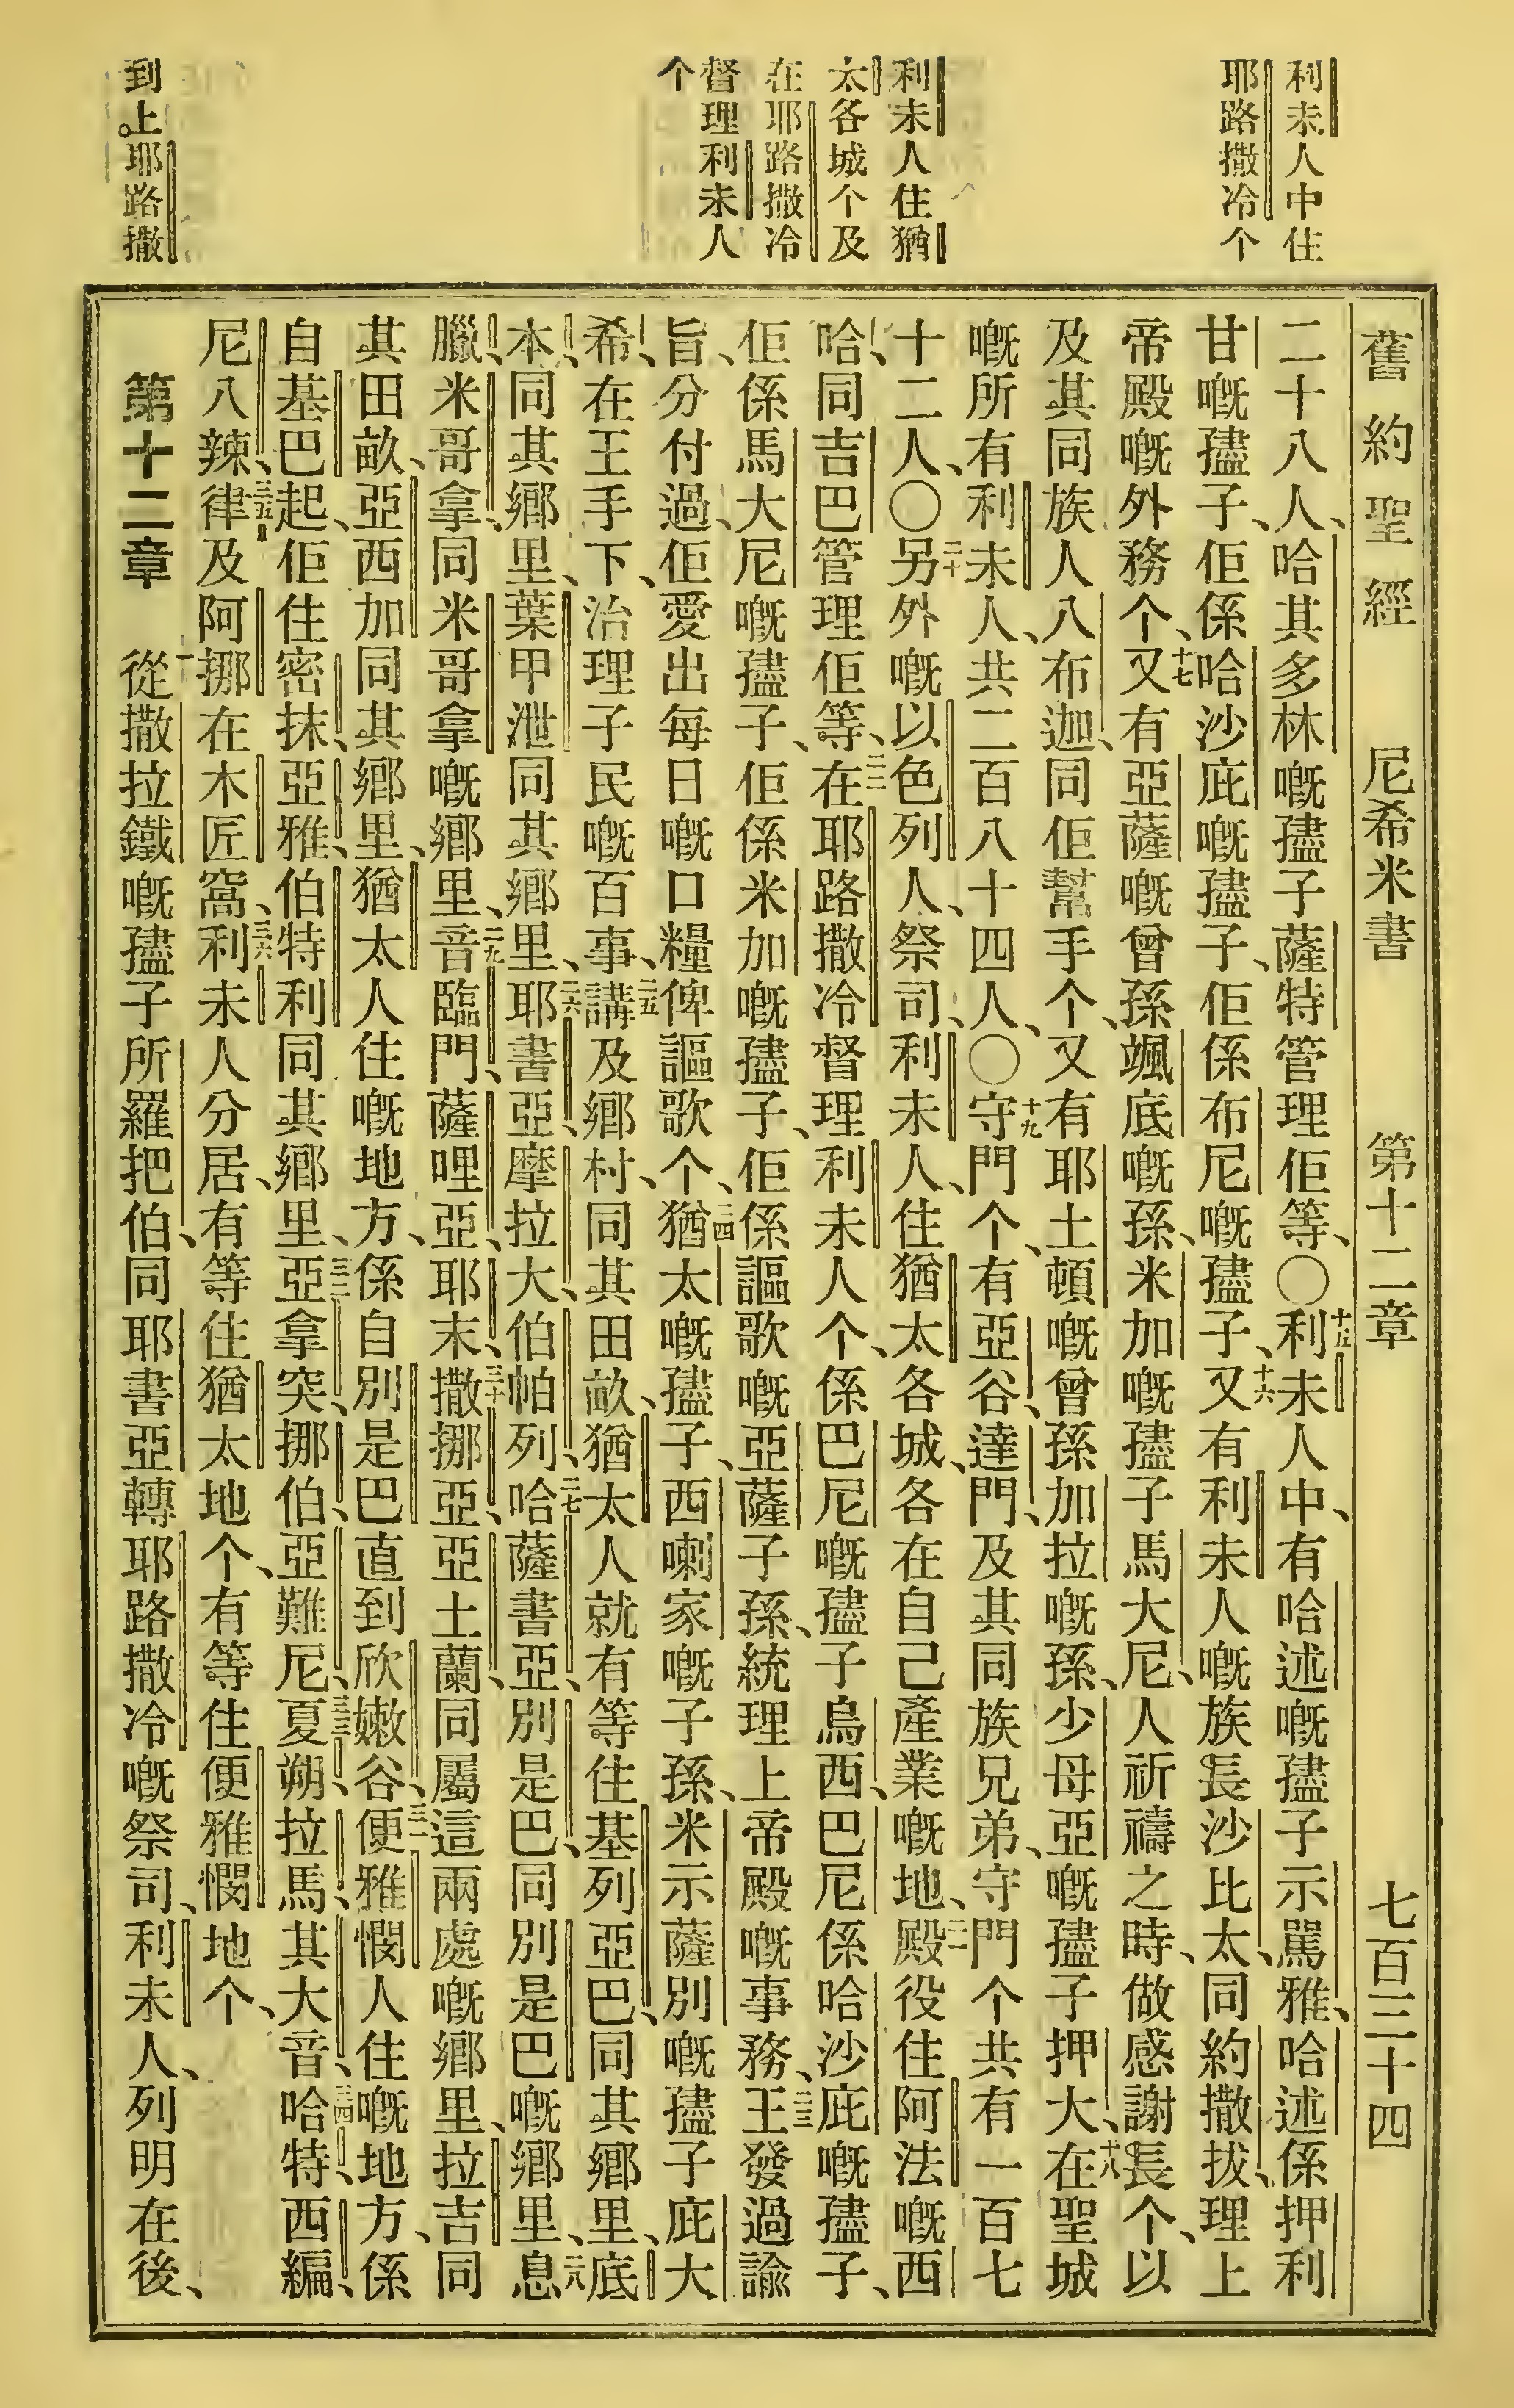 利未人中住
耶路撒冷个
利未人住猶
太各城个及
在耶路撒冷
督理利未人
个
到上耶路撒
舊約聖經 尼希米書 第十二章 七百三十四
二十八人、哈其多林嘅孻子薩特管理佢等、〇十五利未人中、有哈述嘅孻子示罵雅、哈述係押利
甘嘅孻子、佢係哈沙庇嘅孻子、佢係布尼嘅孻子、十六又有利未人嘅族長沙比太、同約撒拔、理上
帝殿嘅外務个、十七又有亞薩嘅曾孫颯底嘅孫、米加嘅孻子馬大尼、人祈禱之時、做感謝長个、以
及其同族人八布迦、同佢幫手个、又有耶土頓嘅曾孫加拉嘅孫、少母亞嘅孻子押大、十八在聖城
嘅所有利未人、共二百八十四人、〇十九守門个、有亞谷、達門、及其同族兄弟、守門个共有一百七
十二人、〇二十另外嘅以色列人、祭司、利未人、住猶太各城、各在自己產業嘅地、二一殿役住阿法嘅西
哈、同吉巴管理佢等、二二在耶路撒冷督理利未人个、係巴尼嘅孻子烏西、巴尼係哈沙庇嘅孻子、
佢係馬大尼嘅孻子、佢係米加嘅孻子、佢係謳歌嘅亞薩子孫、統理上帝殿嘅事務、二三王發過諭
旨、分付過、佢愛出每日嘅口糧俾謳歌个、二四猶太嘅孻子、西喇家嘅子孫、米示薩別嘅孻子庇大
希、在王手下、治理子民嘅百事、二五講及鄉村、同其田畝、猶太人就有等住基列亞巴、同其鄉里、底
本、同其鄉里、葉甲泄同其鄉里、二六耶書亞、摩拉大、伯帕列、二七哈薩書亞、別是巴、同別是巴嘅鄉里、二八息
臘、米哥拿、同米哥拿嘅鄉里、二九音臨門、薩哩亞、耶末、三十撒挪亞、亞土蘭、同屬這兩處嘅鄉里、拉吉同
其田畝、亞西加同其鄉里、猶太人住嘅地方、係自別是巴直到欣嫩谷、三一便雅憫人住嘅地方、係
自基巴起、佢住密抹、亞雅、伯特利同其鄉里、三二亞拿突、挪伯、亞難尼、三三夏朔、拉馬、其大音、三四哈特、西編、
尼八辣、三五律及阿挪在木匠窩、三六利未人分居、有等住猶太地个、有等住便雅憫地个、
第十二章 一從撒拉鐵嘅孻子所羅把伯、同耶書亞轉耶路撒冷嘅祭司、利未人、列明在後、